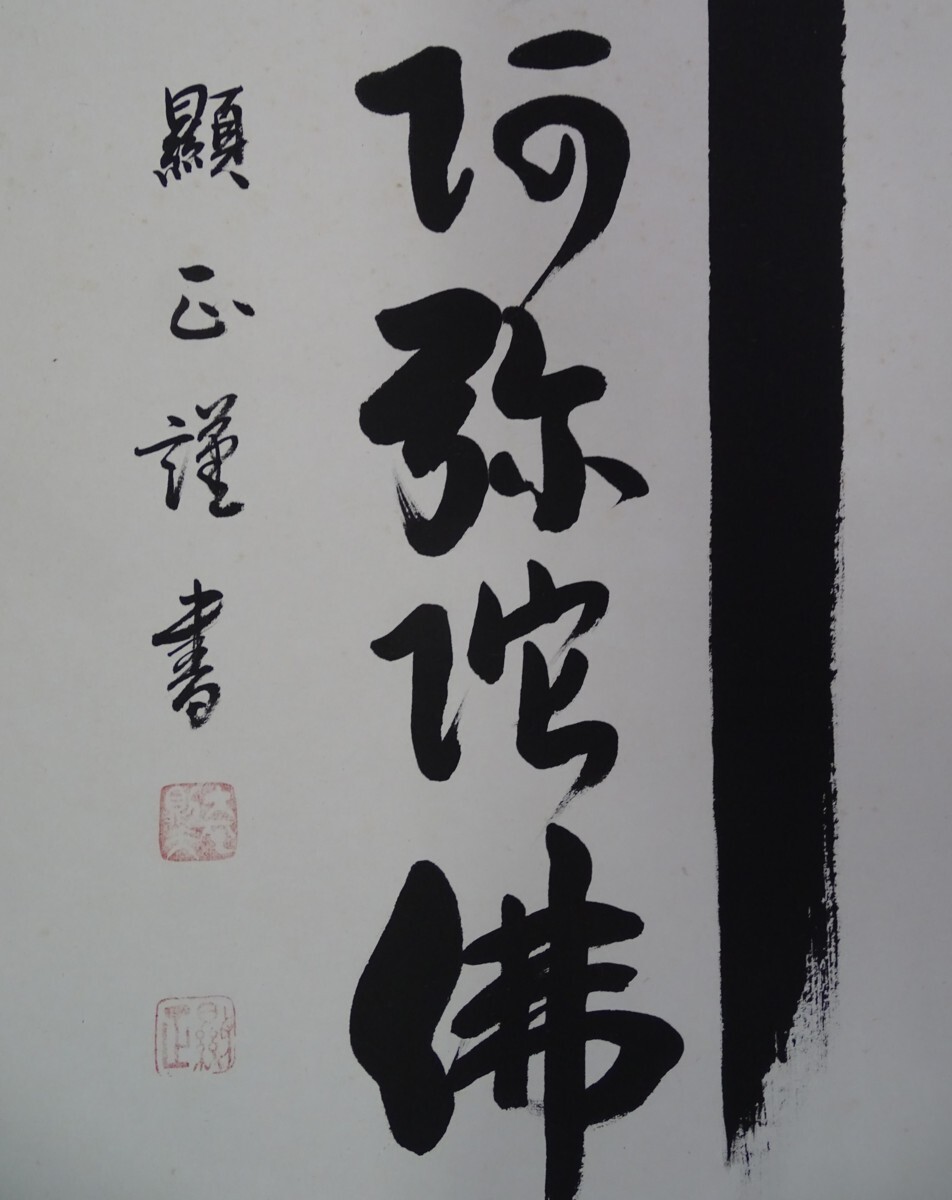 阿弥陀佛
顯正謹書